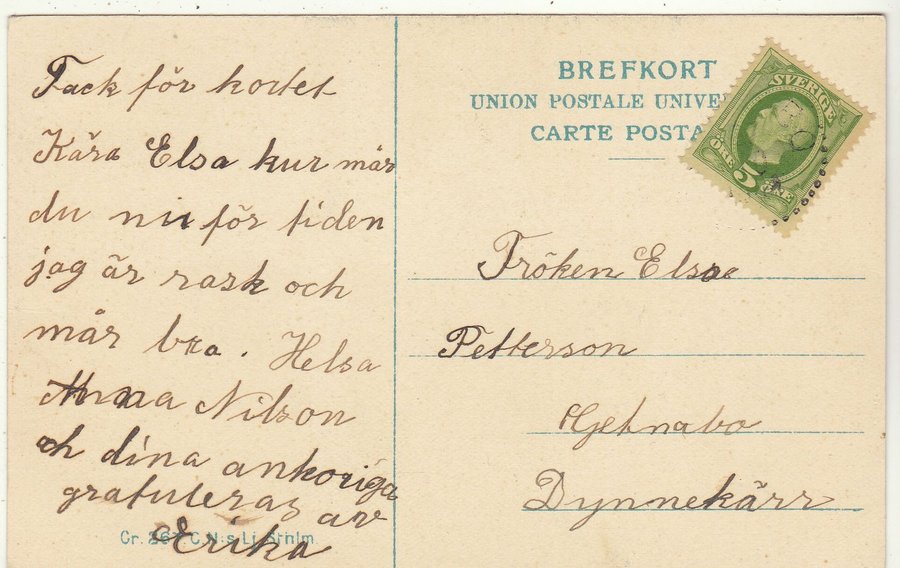 Tack för kortet
Kära Elsa hur mår
du nu för tiden
jag är rask och
mår bra. Helsa
Anna Nilson
och dina
gratuleras av
Erika
BREFKORT
UNION POSTALE UNIVE
CARTE POSTA
SVERIGE
5
ÖRE ÖRE
Fröken Elsa
Petterson
Dynnekärr